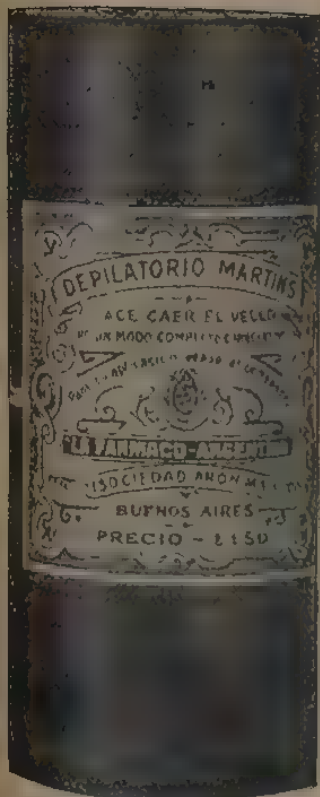 DEPILATORIO MARTINS
ACE CAER EL VELLO
UN MODO
LA FARMACO-ARGENTINA
SOCIEDAD ANONIMA
BUENOS AIRES
PRECIO - $ 1.50